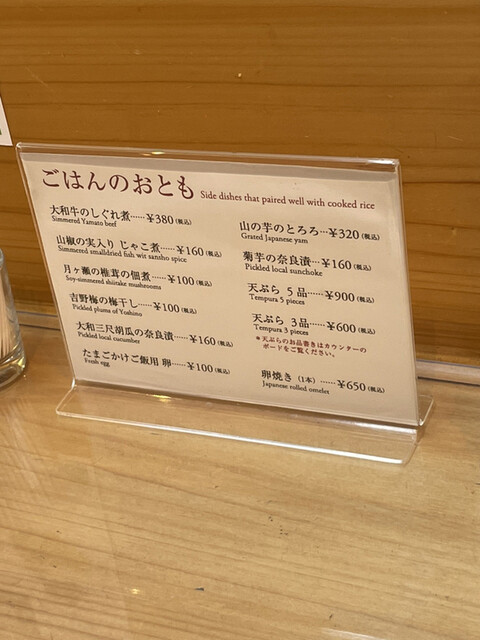 ごはんのおとも Side dishes that paired well with cooked rice
大和牛のしぐれ煮……¥380(税込)
Simmered Yamato beef
山椒の実入り じゃこ煮…¥160(税込)
Simmered smalldried fish wit sansho spice
月ヶ瀬の椎茸の佃煮……¥100(税込)
Soy-simmered shiitake mushrooms
吉野梅の梅干し……¥100(税込)
Pickled plums of Yoshino
大和三尺胡瓜の奈良漬…¥160(税込)
Pickled local cucumber
たまごかけご飯用 卵…¥100(税込)
Fresh egg
山の芋のとろろ…¥320(税込)
Grated Japanese yam
菊芋の奈良漬…¥160(税込)
Pickled local sunchoke
天ぷら 5品……¥900(税込)
Tempura 5 pieces
天ぷら 3品……¥600(税込)
Tempura 3 pieces
*天ぷらのお品書きはカウンターの
ボードをご覧ください。
卵焼き(1本)……¥650(税込)
Japanese rolled omelet